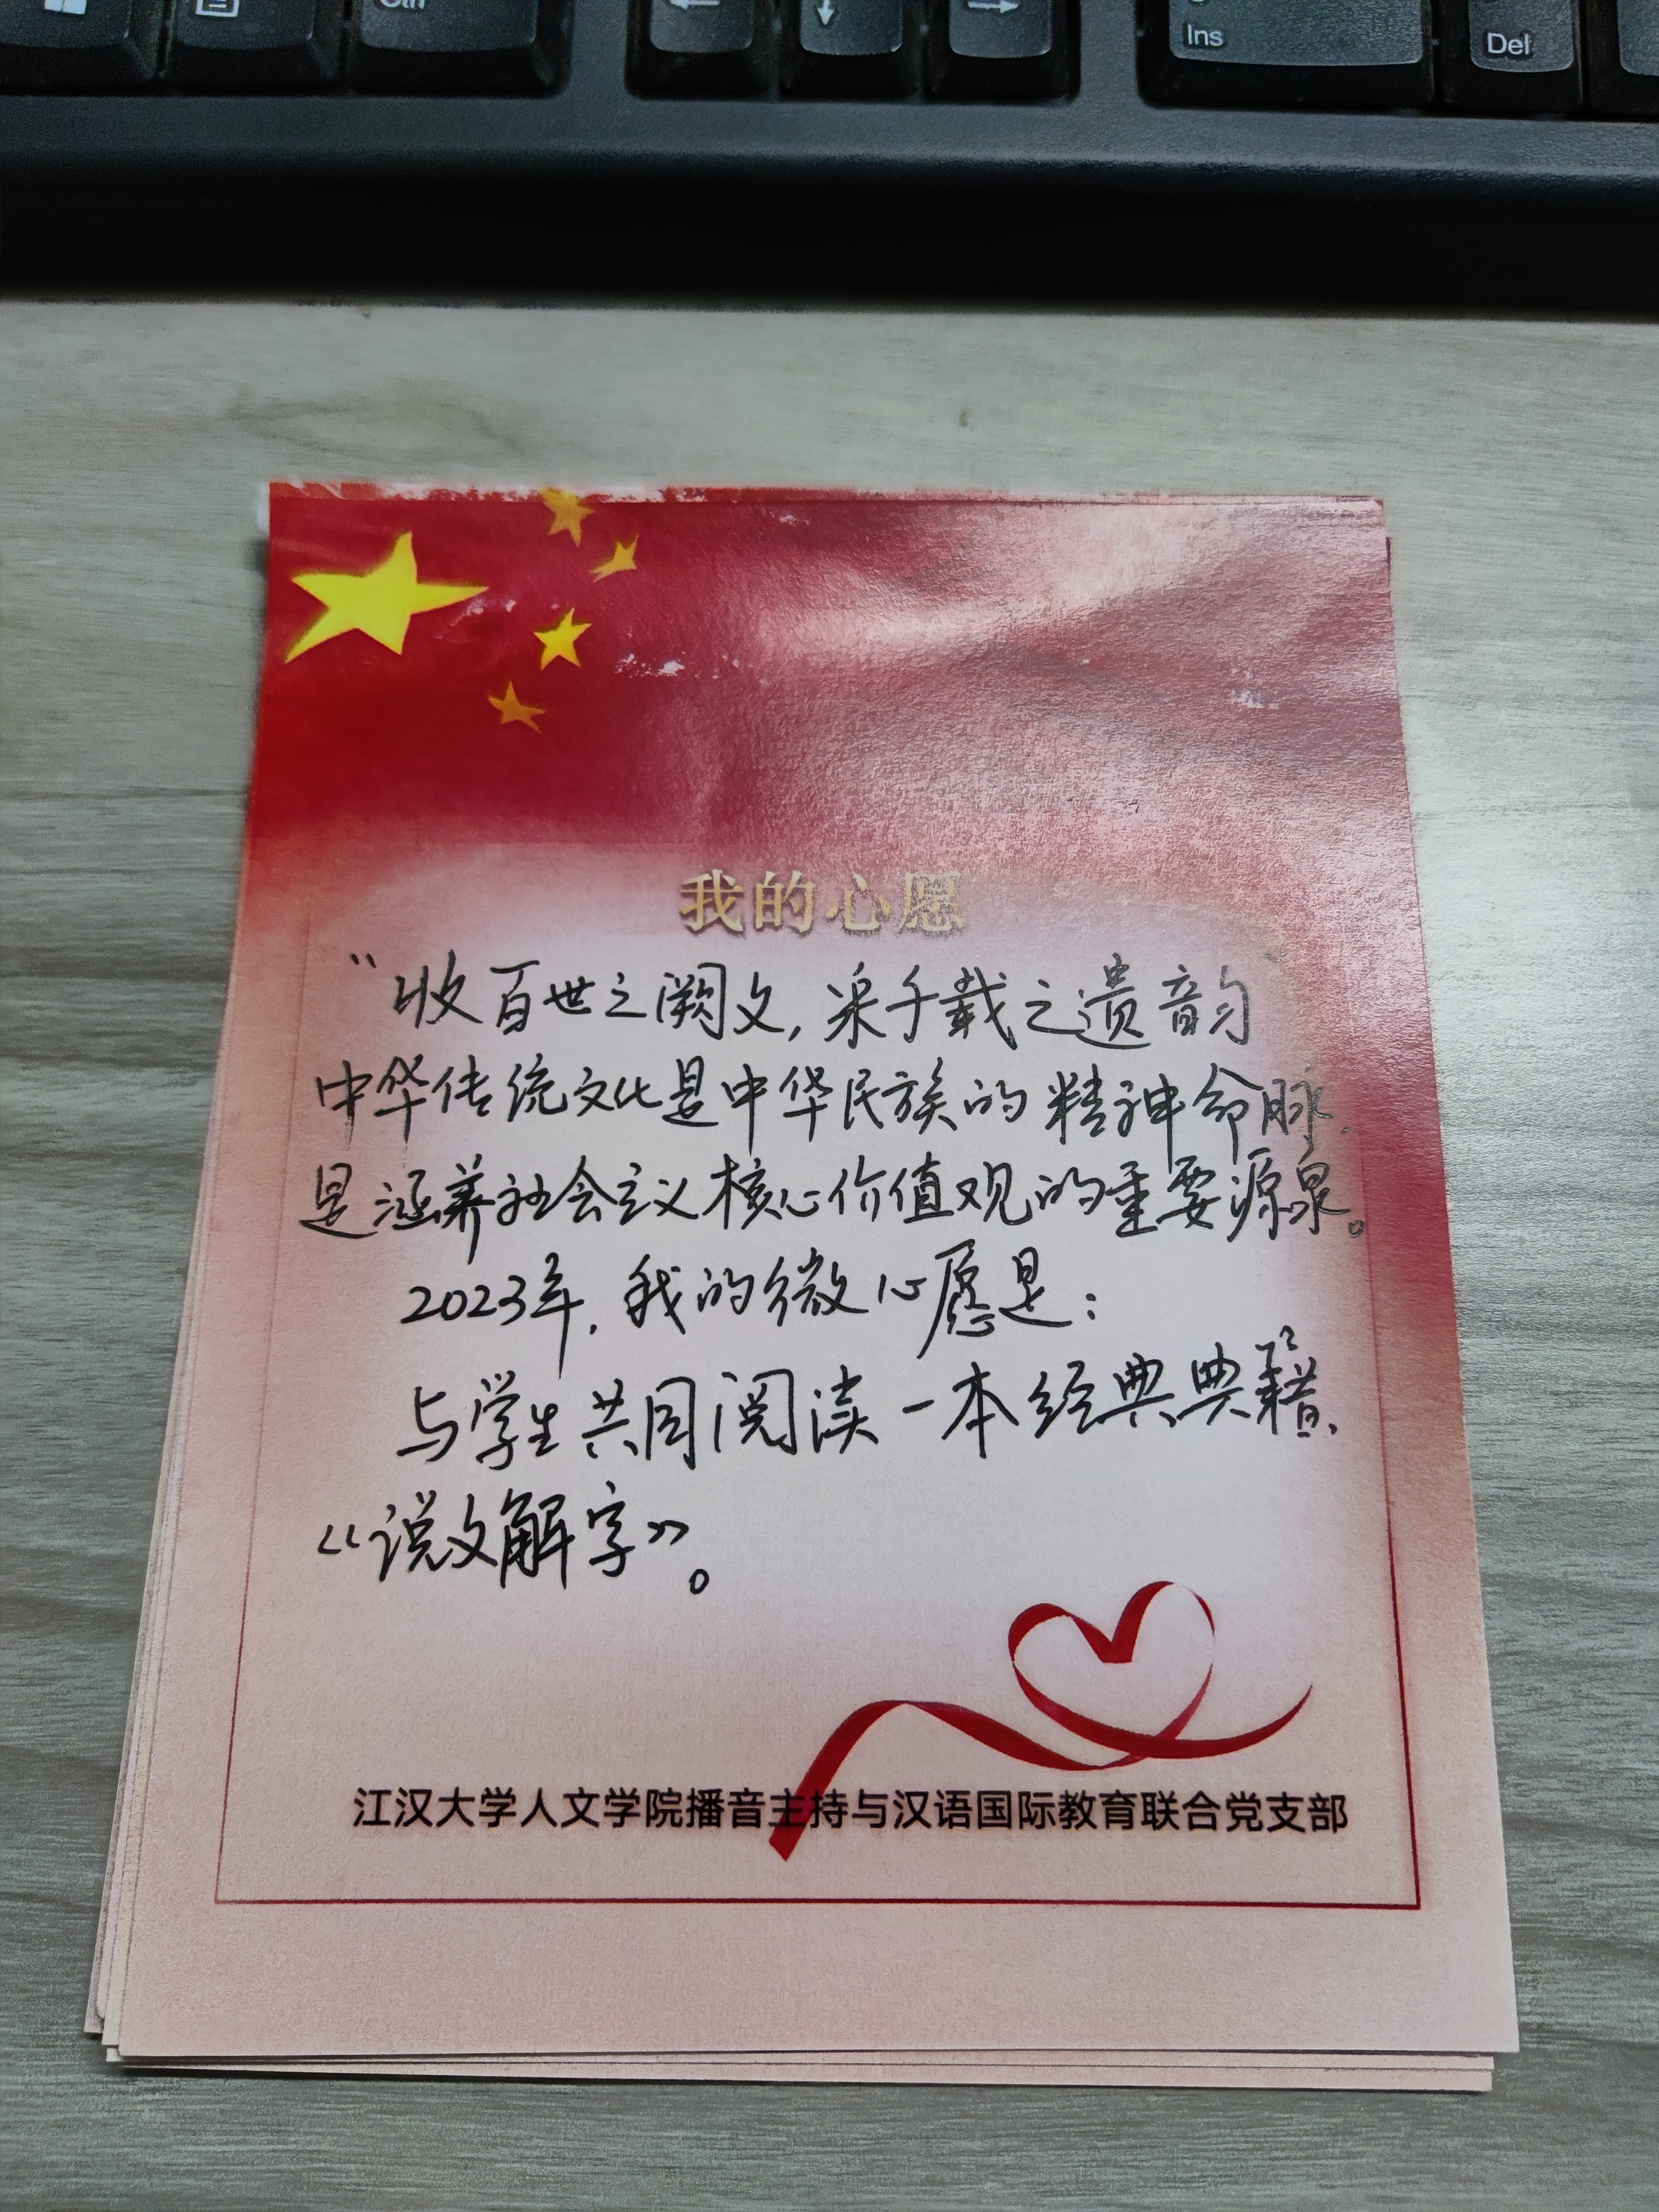 Ctrl
←
↓
→
Ins
Del
我的心愿
“收百世之阙文,采千载之遗韵”
中华传统文化是中华民族的精神命脉,
是涵养社会主义核心价值观的重要源泉。
2023年,我的微心愿是:
与学生共同阅读一本经典典籍,
《说文解字》。
江汉大学人文学院播音主持与汉语国际教育联合党支部